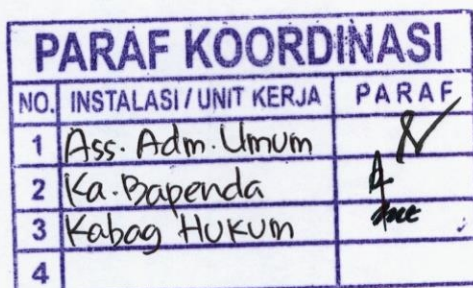 PARAF KOORDINASI
NO. INSTALASI / UNIT KERJA PARAF
1 Ass. Adm. Umum
2 Ka. Bapenda
3 Kabag Hukum
4